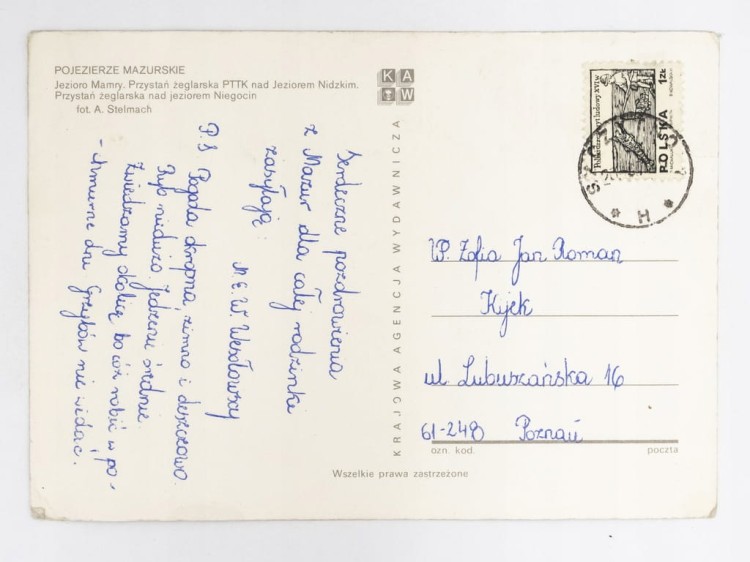 POJEZIERZE MAZURSKIE
Jezioro Mamry. Przystań żeglarska PTTK nad Jeziorem Nidzkim.
Przystań żeglarska nad jeziorem Niegocin
fot. A. Stelmach
KAW
Serdeczne pozdrowienia
z Mazur dla całej rodzinki
zasyłają:
M.E.W. Wesołowscy
P.S Pogoda okropna, zimno i deszczowo.
Ryb niedużo. Jedzenie średnie
Zwiedzamy okolicę bo cóż robić w po-
chmurne dni Grzybów nie widać.
KRAJOWA AGENCJA WYDAWNICZA
POLSKA
1 ZŁ
H
WP. Zofia Jan Roman
Kijek
ul Lubuszańska 16
61-248 Poznań
ozn. kod.
poczta
Wszelkie prawa zastrzeżone